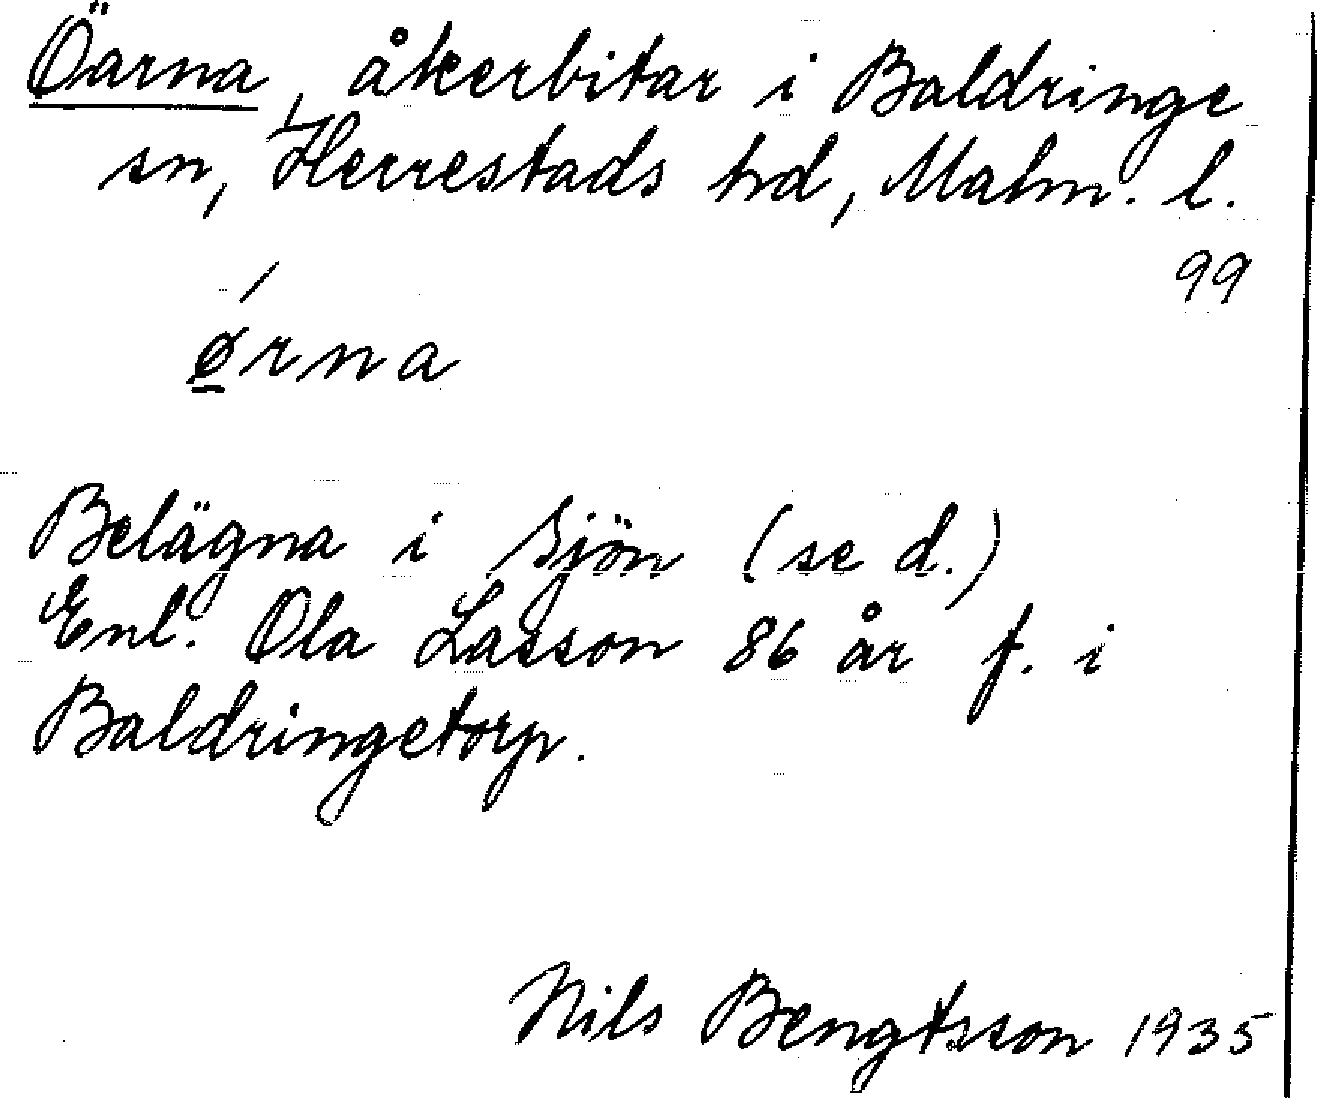 Öarna, åkerbitar i Baldringe
sn, Herrestads hd, Malm. l.
99
ørna
Belägna i Sjön (se d.)
Enl. Ola Lasson 86 år f. i
Baldringetorp.
Nils Bengtsson 1935